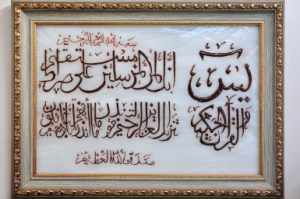 بسم الله الرحمن الرحيم
يس
والقرآن الحكيم
إنك لمن المرسلين على صراط مستقيم
تنزيل العزيز الرحيم لتنذر قوما ما أنذر آباؤهم فهم غافلون
صدق الله العظيم